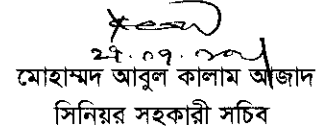 মোহাম্মদ আবুল কালাম আজাদ
সিনিয়র সহকারী সচিব